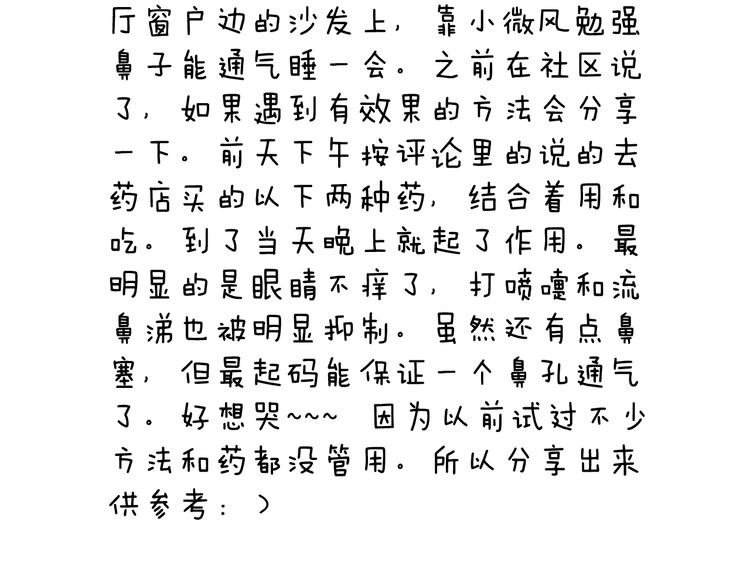 厅窗户边的沙发上，靠小微风勉强
鼻子能通气睡一会。之前在社区说
了，如果遇到有效果的方法会分享
一下。前天下午按评论里的说的去
药店买的以下两种药，结合着用和
吃。到了当天晚上就起了作用。最
明显的是眼睛不痒了，打喷嚏和流
鼻涕也被明显抑制。虽然还有点鼻
塞，但最起码能保证一个鼻孔通气
了。好想哭~~~ 因为以前试过不少
方法和药都没管用。所以分享出来
供参考：）